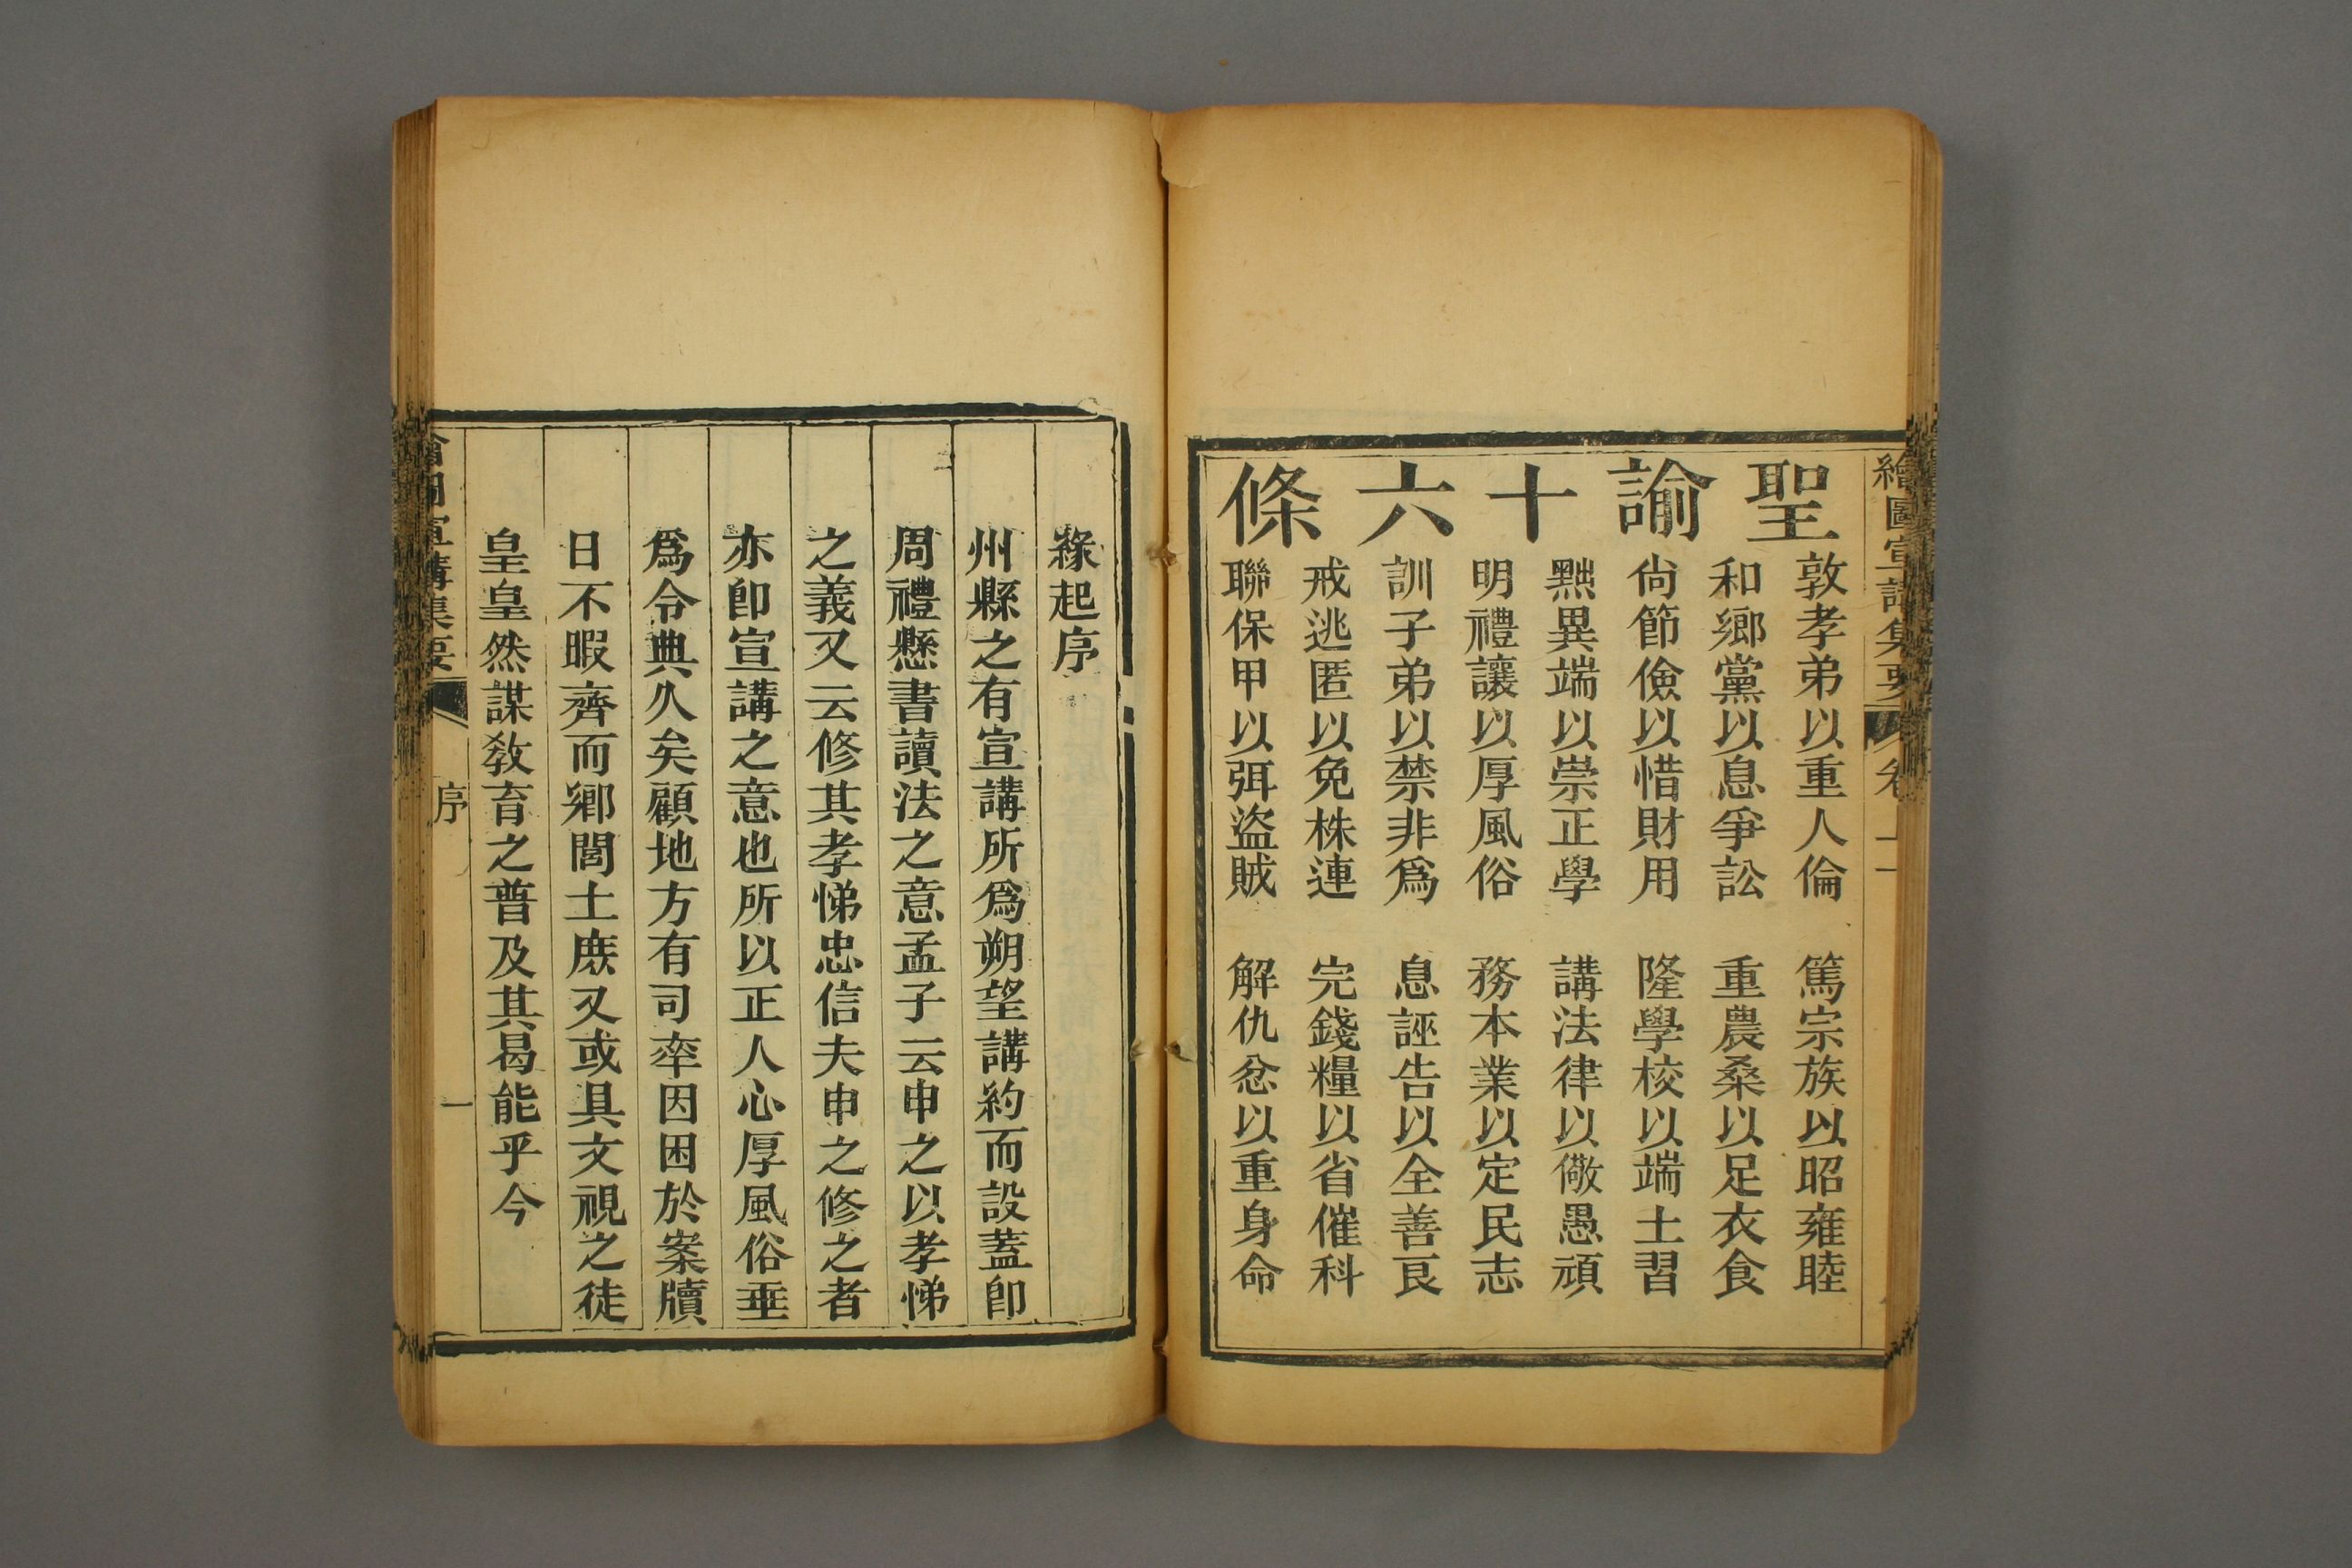 繪圖宣講集要 卷 一
聖諭十六條
敦孝弟以重人倫 篤宗族以昭雍睦
和鄉黨以息爭訟 重農桑以足衣食
尙節儉以惜財用 隆學校以端士習
黜異端以崇正學 講法律以儆愚頑
明禮讓以厚風俗 務本業以定民志
訓子弟以禁非爲 息誣告以全善良
戒逃匿以免株連 完錢糧以省催科
聯保甲以弭盜賊 解仇忿以重身命
緣起序
州縣之有宣講所爲朔望講約而設蓋卽
周禮懸書讀法之意孟子云申之以孝悌
之義又云修其孝悌忠信夫申之修之者
亦卽宣講之意也所以正人心厚風俗垂
爲令典久矣顧地方有司率因困於案牘
日不暇齊而鄉閭士庶又或具文視之徒
皇皇然謀敎育之普及其曷能乎今
繪圖宣講集要 序 一